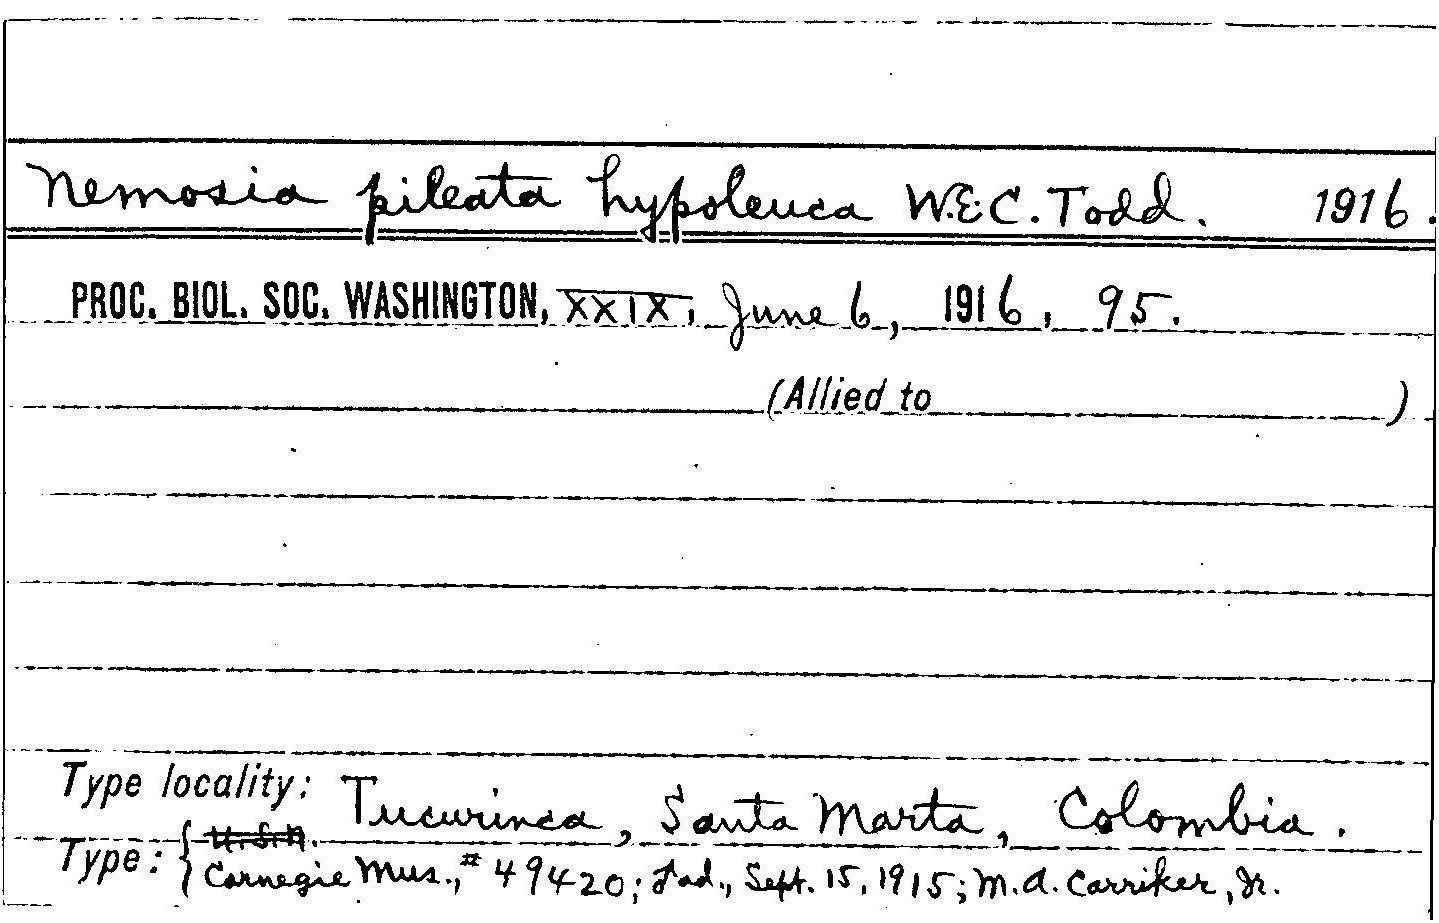 Nemosia pileata hypoleuca W.E.C. Todd. 1916.
PROC. BIOL. SOC. WASHINGTON, XXIX, June 6, 1916, 95.
(Allied to )
Type locality: Tucurinca, Santa Marta, Colombia.
U.S.N.
Type: { Carnegie Mus., # 49420; ad., Sept. 15, 1915; M.A. Carriker, Jr.